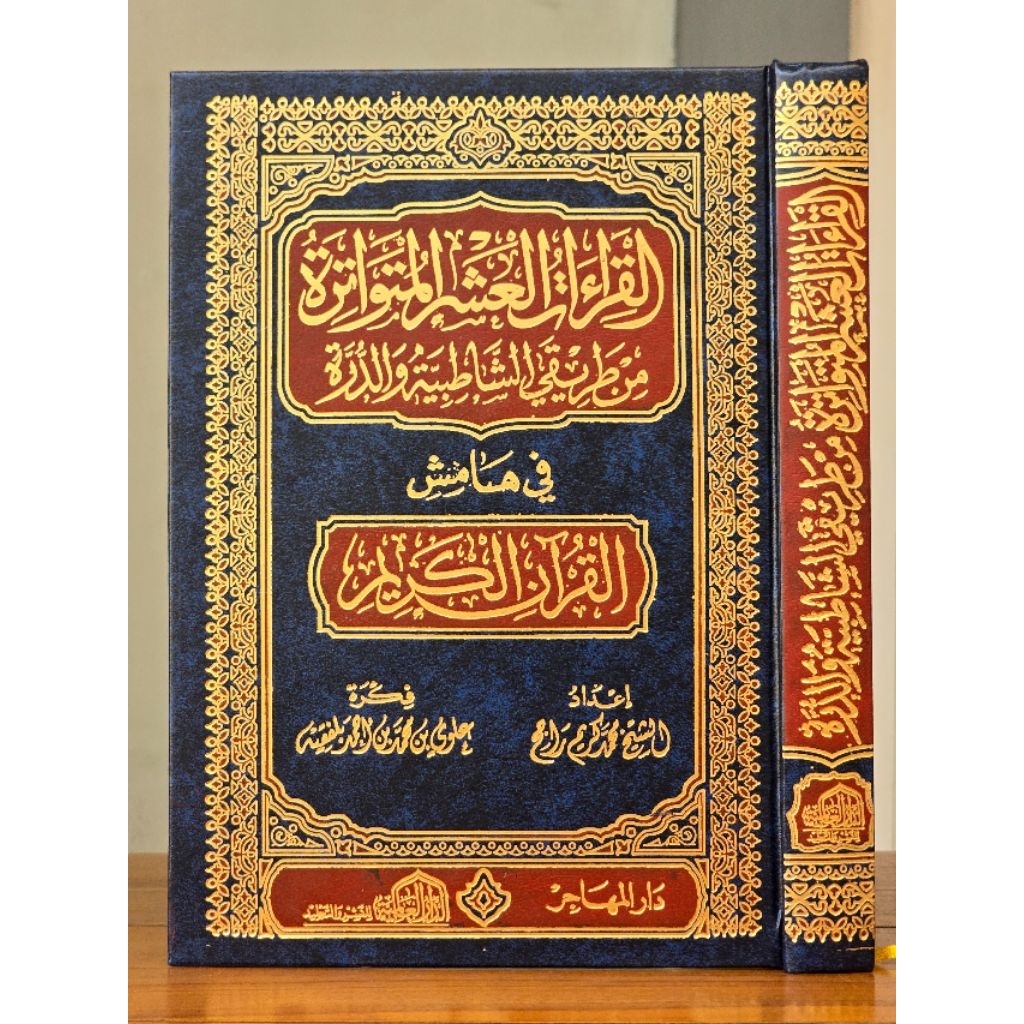 القِرَاءَاتُ العَشْرُ المُتَوَاتِرَةُ
مِنْ طَرِيقَيِ الشَّاطِبِيَّةِ وَالدُّرَّةِ
في هَامِش
القُرْآنِ الكَرِيمِ
إعْدَادُ
الشيخ محمد كريم راجح
فِكْرَة
علوي بن محمد بن أحمد بلفقيه
دَار المهَاجِر
الدار العالمية
للنشر والتجليد
القراءات العشر المتواترة من طريقي الشاطبية والدرة
الدار العالمية